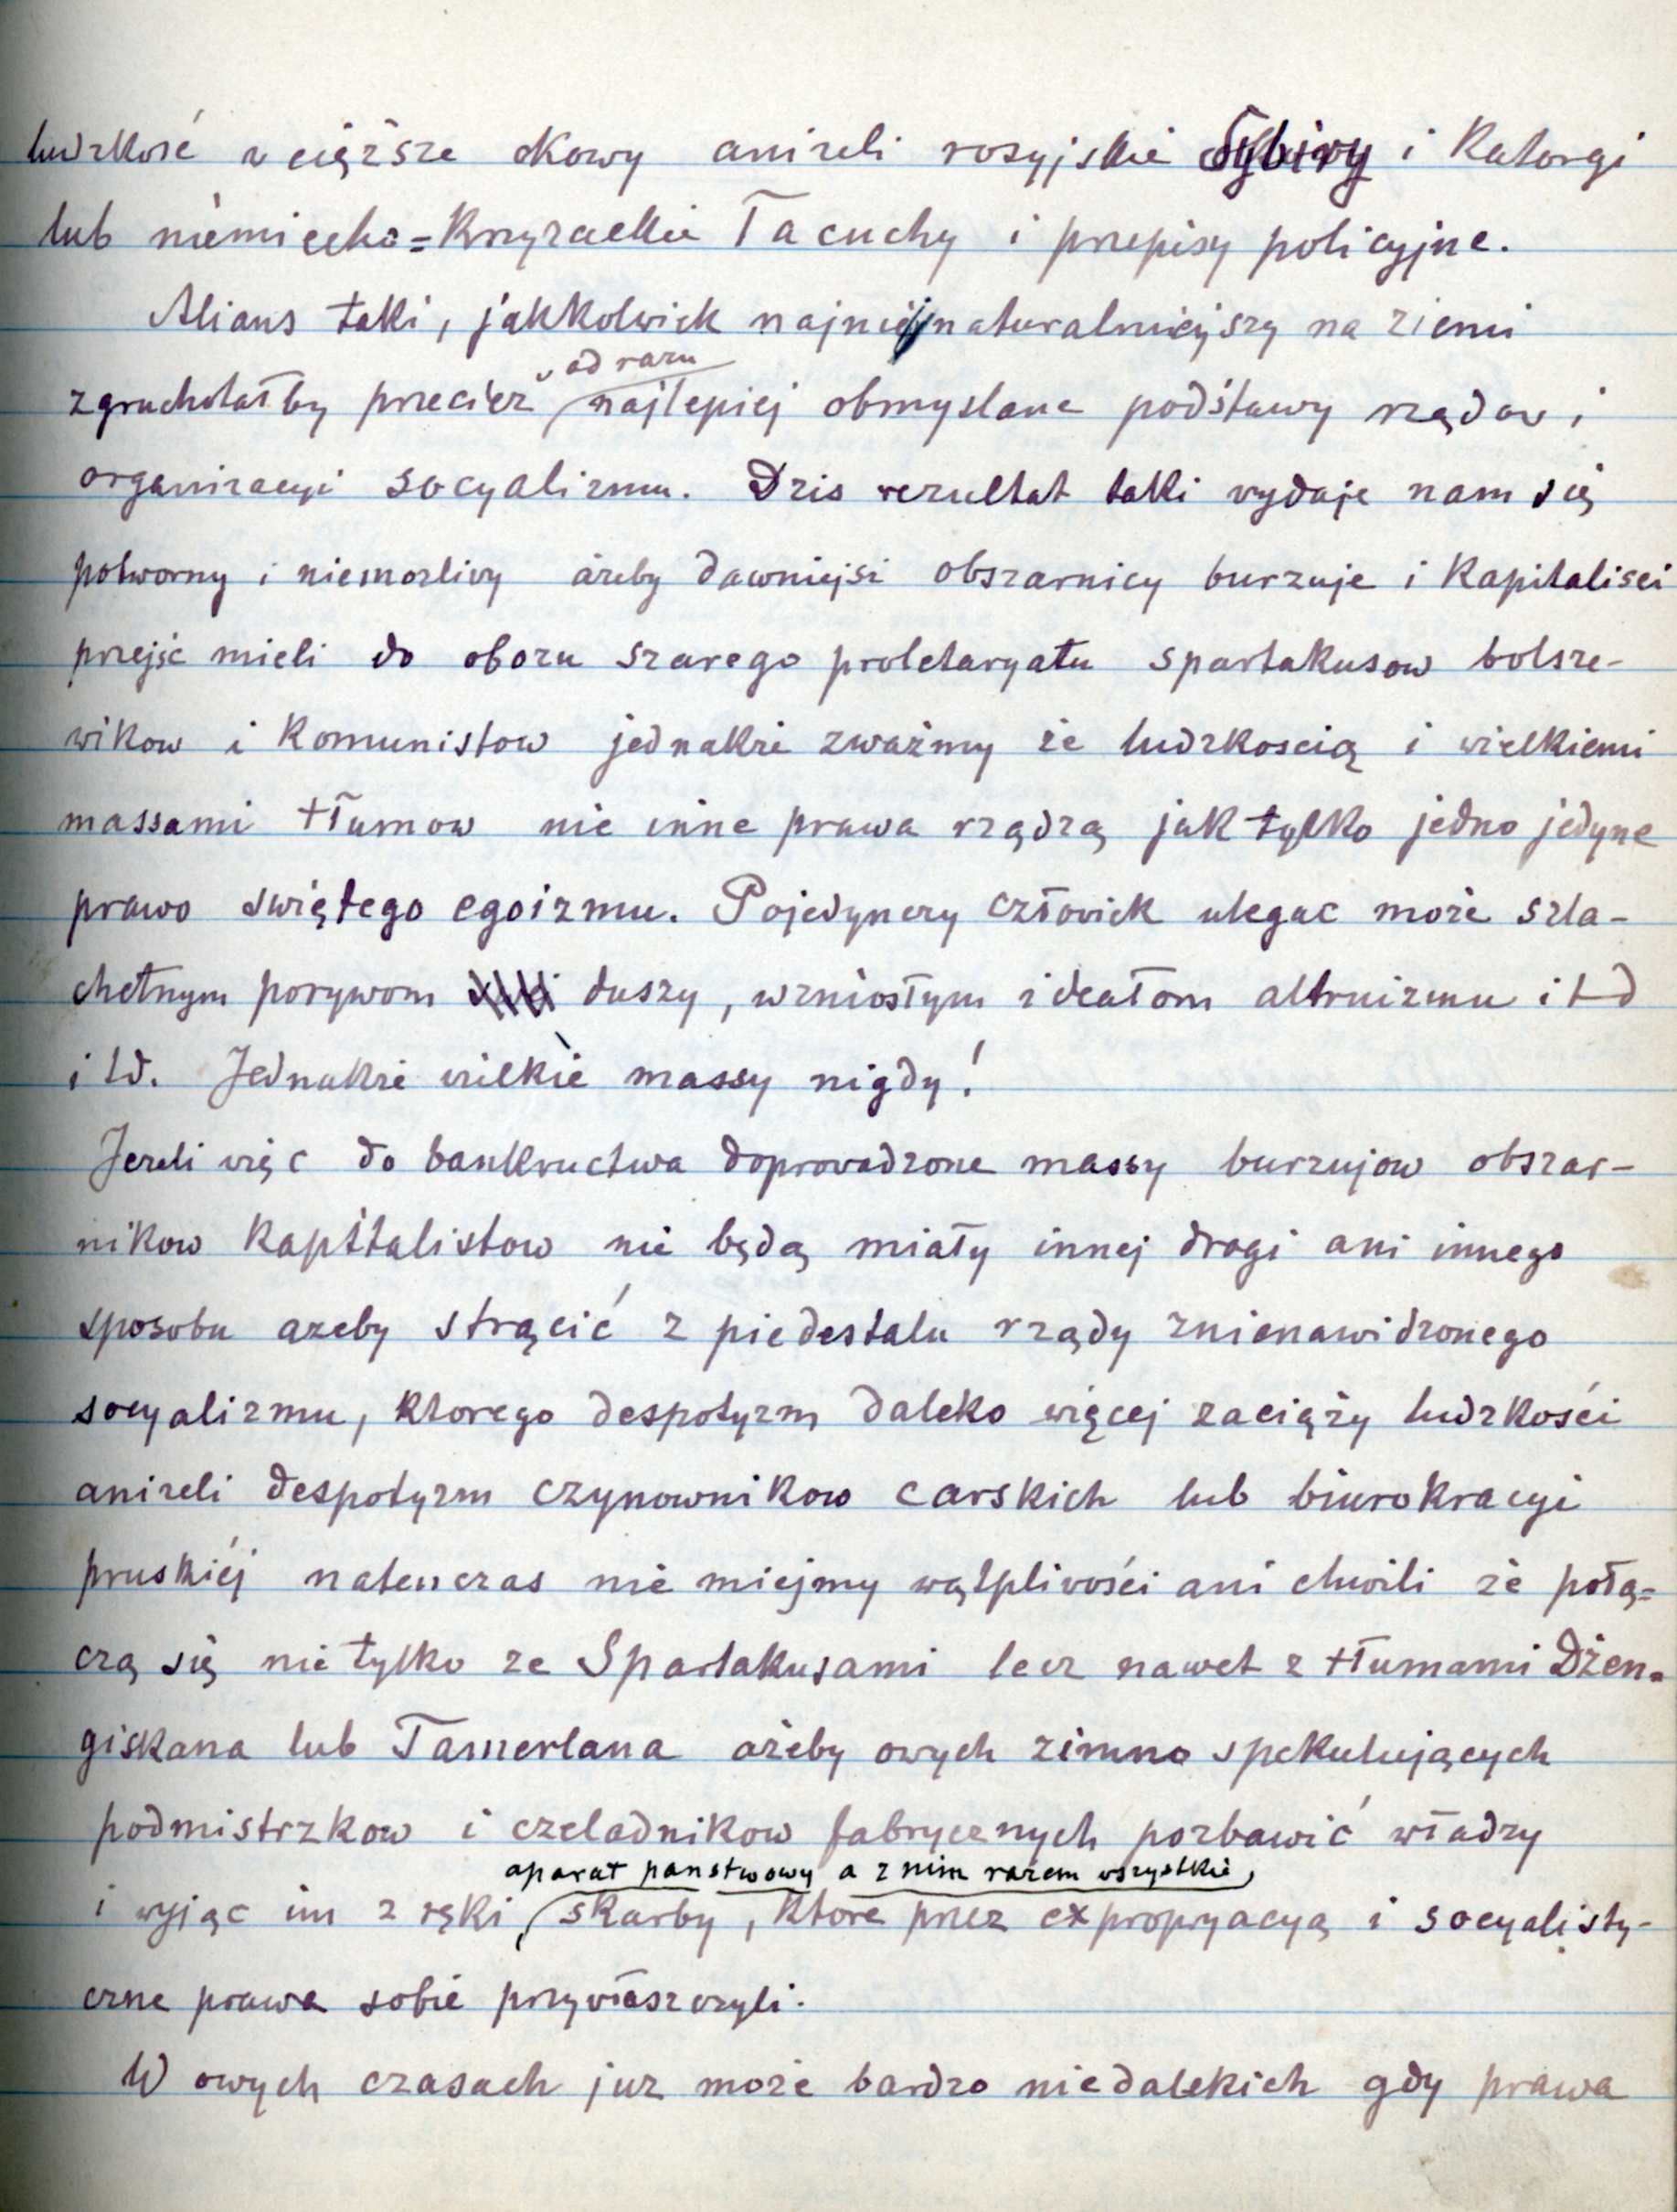 ludzkość w cięższe okowy anizeli rosyjskie Sybiry i Katorgi
lub niemiecko=Krzyzackie Tacuchy i przepisy policyjne.
Alians taki, jakkolwiek najnienaturalniejszy na ziemi
od razu
zgruchotałby przeciez najlepiej obmyslane podstawy rządow i
organizacyi socyalizmu. Dzis rezultat taki wydaje nam się
potworny i niemozliwy ażeby dawniejsi obszarnicy burzuje i Kapitalisci
przejść mieli do obozu szarego proletaryatu spartakusow bolsze-
wikow i Komunistow jednakże zważmy że ludzkoscią i wielkiemi
massami tłumow nie inne prawa rządzą jak tylko jedno jedyne
prawo swiętego egoizmu. Pojedynczy człowiek ulegac może szla-
chetnym porywom duszy, wzniosłym ideałom altruizmu i t d
i td. Jednakże wielkie massy nigdy!
Jezeli więc do bankructwa doprowadzone massy burzujow obszar-
nikow Kapitalistow nie będą miały innej drogi ani innego
sposobu azeby strącić z piedestalu rządy znienawidzonego
socyalizmu, ktorego despotyzm daleko więcej zaciąży ludzkości
anizeli despotyzm czynownikow carskich lub biurokracyi
pruskiéj natenczas nie miejmy wątpliwości ani chwili że połą=
czą się nie tylko ze Spartakusami lecz nawet z tłumami Dżen=
giskana lub Tamerlana ażeby owych zimno spekulujących
podmistrzkow i czeladnikow fabrycznych pozbawić władzy
aparat panstwowy a z nim razem wszystkie
i wyjąc im z ręki, skarby, ktore przez expropryacyą i socyalisty-
czne prawa sobie przywłaszczyli.
W owych czasach juz może bardzo niedalekich gdy prawa